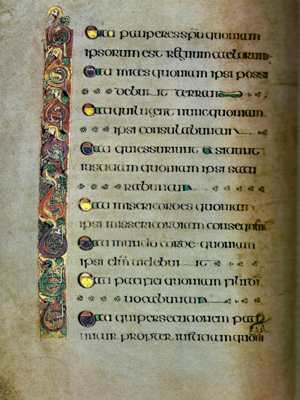 Beati pauperes spu quoniam
ipsorum est regnum caelorum
Beati mites quoniam ipsi possi
debunt terram
Beati qui lugent nunc quoniam
ipsi consulabuntur
Beati qui essuriunt & sitiunt
iustitiam quoniam ipsi satu
rabuntur
Beati misericordes quoniam
ipsi misericordiam consequentur
Beati mundo corde quoniam
ipsi dm videbunt
Beati pacifici quoniam filii di
vocabuntur
Beati qui persecutionem pati
untur propter iustitiam quoniam